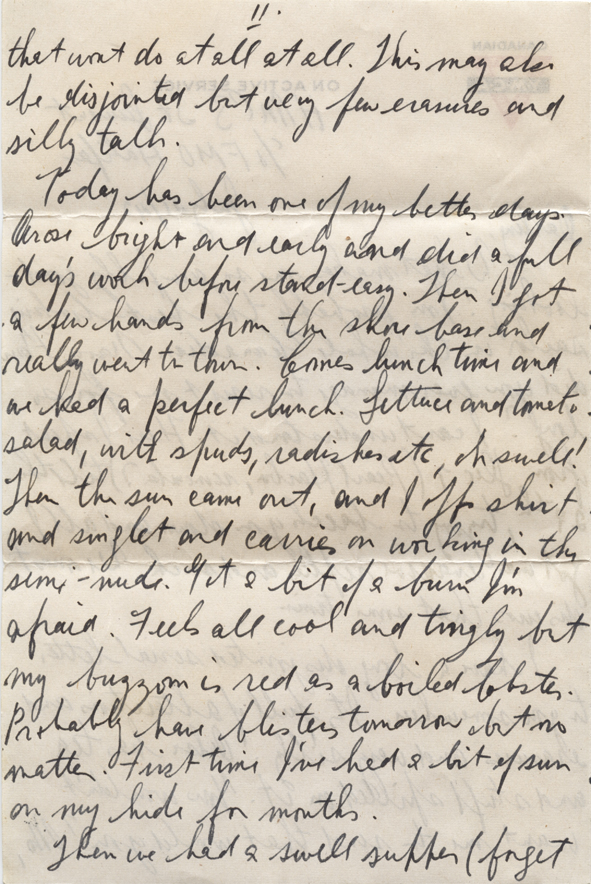 11.
that wont do at all at all. This may also
be disjointed but very few erasures and
silly talk.
Today has been one of my better days.
Arose bright and early and did a full
day's work before stand-easy. Then I got
a few hands from the shore base and
really went to town. Comes lunch time and
we had a perfect lunch. Lettuce and tomato
salad, with spuds, radishes etc, oh swell!
Then the sun came out, and I off shirt
and singlet and carries on working in the
semi-nude. Got a bit of a burn I'm
afraid. Feels all cool and tingly but
my buzzom is red as a boiled lobster.
Probably have blisters tomorrow but no
matter. First time I've had a bit of sun
on my hide for months.
Then we had a swell supper (forget